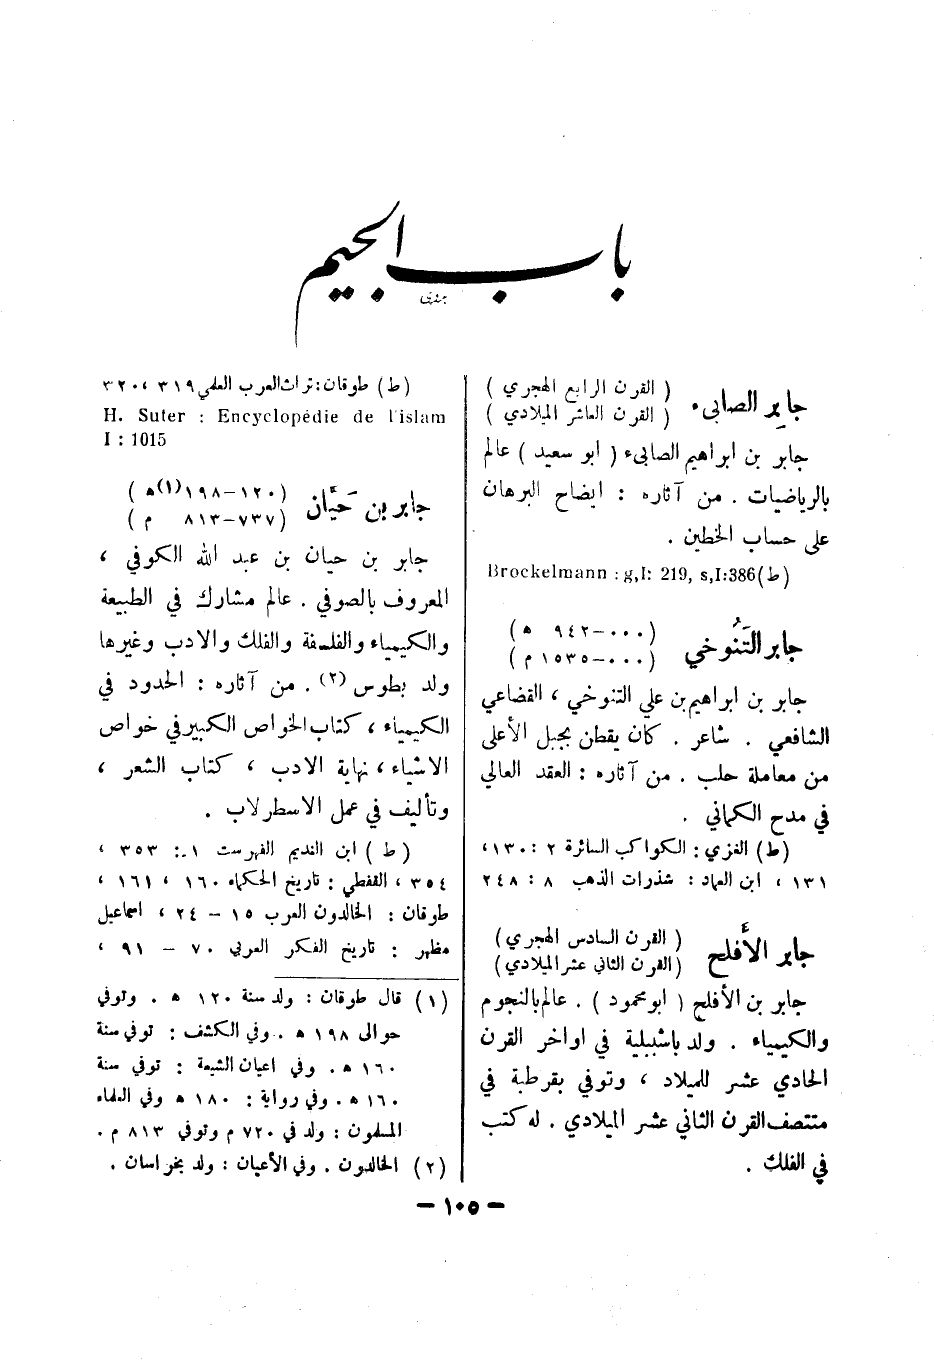 باب الجيم
جابر الصابىء
( القرن الرابع الهجري )
( القرن العاشر الميلادي )
جابر بن ابراهيم الصابىء ( ابو سعيد ) عالم
بالرياضيات . من آثاره : ايضاح البرهان
على حساب الخطين .
(ط) Brockelmann : g,I: 219, s,I:386
جابر التَنُوخي
( ٠٠٠ – ٩٤٢ ه )
( ٠٠٠ – ١٥٣٥ م )
جابر بن ابراهيم بن علي التنوخي ، القضاعي
الشافعي . شاعر . كان يقطن بجبل الأعلى
من معاملة حلب . من آثاره : العقد الغالي
في مدح الكماني .
(ط) الغزي : الكواكب السائرة ٢ : ١٣٠،
١٣١ ، ابن العماد : شذرات الذهب ٨ : ٢٤٨
جابر الأفلح
( القرن السادس الهجري )
( القرن الثاني عشر الميلادي )
جابر بن الأفلح ( ابو محمود ) . عالم بالنجوم
والكيمياء . ولد باشبيلية في اواخر القرن
الحادي عشر للميلاد ، وتوفي بقرطبة في
منتصف القرن الثاني عشر الميلادي . له كتب
في الفلك .
(ط) طوقان : تراث العرب العلمي ٣١٩ ، ٣٢٠
H. Suter : Encyclopédie de l'islam
I : 1015
جابر بن حَيَّان
( ١٢٠ – ١٩٨ (١) ه )
( ٧٣٧ – ٨١٣ م )
جابر بن حيان بن عبد الله الكوفي ،
المعروف بالصوفي . عالم مشارك في الطبيعة
والكيمياء والفلسفة والفلك والادب وغيرها
ولد بطوس (٢) . من آثاره : الحدود في
الكيمياء ، كتاب الخواص الكبير في خواص
الاشياء ، نهاية الادب ، كتاب الشعر ،
وتأليف في عمل الاسطرلاب .
( ط ) ابن النديم الفهرست ١ : ٣٥٣ ،
٣٥٤ ، القفطي : تاريخ الحكماء ١٦٠ ، ١٦١ ،
طوقان : الخالدون العرب ١٥ – ٢٤ ، اسماعيل
مظهر : تاريخ الفكر العربي ٧٠ – ٩١ ،
(١) قال طوقان : ولد سنة ١٢٠ ه . وتوفي
حوالى ١٩٨ ه . وفي الكشف : توفي سنة
١٦٠ ه . وفي اعيان الشيعة : توفي سنة
١٦٠ ه . وفي رواية : ١٨٠ ه وفي العلماء
المسلمون : ولد في ٧٢٠ م وتوفي ٨١٣ م .
(٢) الخالدون . وفي الأعيان : ولد بخراسان .
– ١٠٥ –